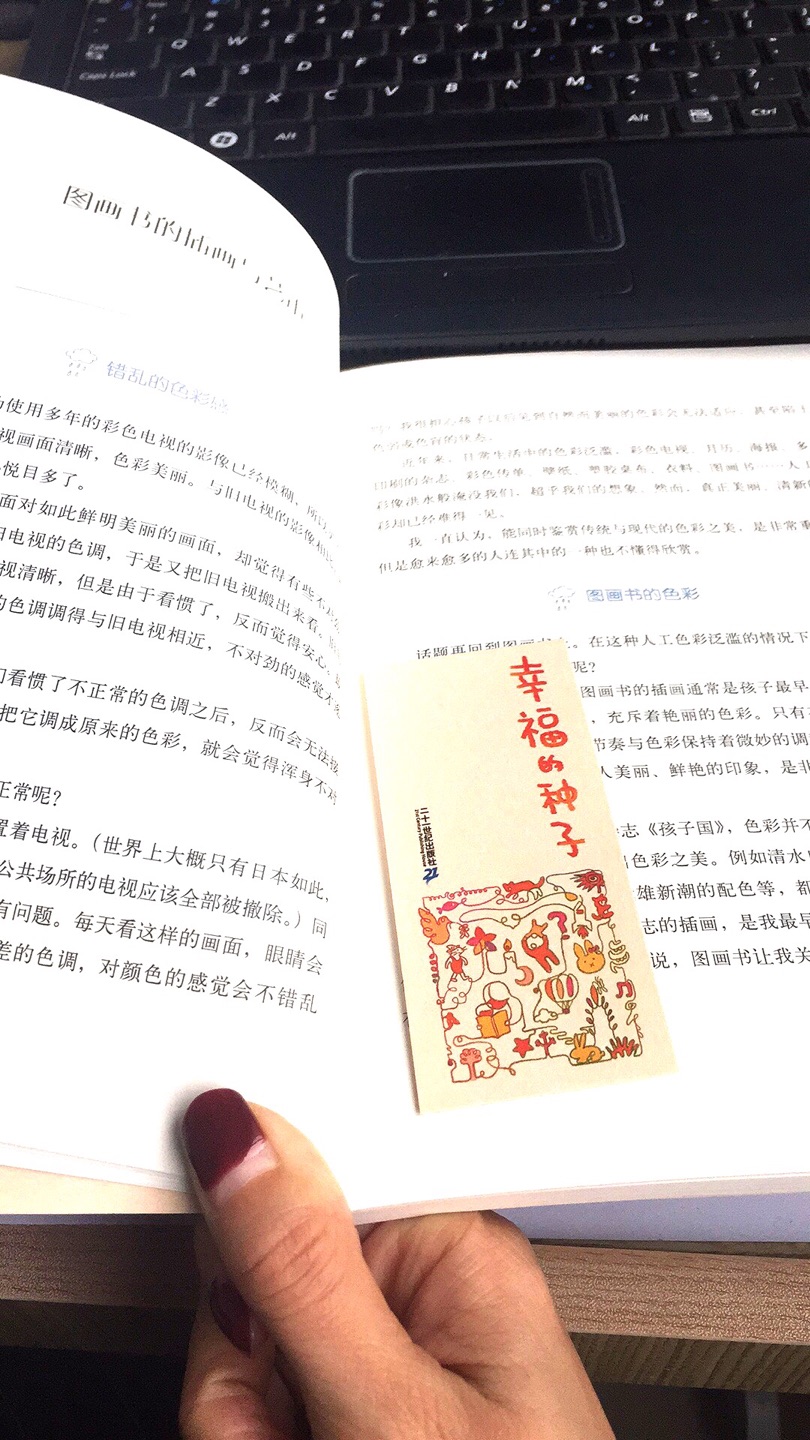 Caps Lock
Q W E R T Y U I O P
A S D F G H J K L
Z X C V B N M
Alt
Alt
Ctrl
图画书的插画与色彩
错乱的色彩感
使用多年的彩色电视的影像已经模糊,所以
视画面清晰,色彩美丽。与旧电视的影像相比
悦目多了。
面对如此鲜明美丽的画面,却觉得有些不
旧电视的色调,于是又把旧电视搬出来看。
视清晰,但是由于看惯了,反而觉得安心。
的色调调得与旧电视相近,不对劲的感觉才
们看惯了不正常的色调之后,反而会无法接
把它调成原来的色彩,就会觉得浑身不对
正常呢?
置着电视。(世界上大概只有日本如此,
公共场所的电视应该全部被撤除。)同
有问题。每天看这样的画面,眼睛会
差的色调,对颜色的感觉会不错乱
我很担心孩子以后见到自然而美丽的色彩会无法适应,甚至陷于
色弱或色盲的状态。
近年来,日常生活中的色彩泛滥,彩色电视、月历、海报、多
印刷的杂志、彩色传单、壁纸、塑胶桌布、衣料、图画书……人工
彩像洪水般淹没我们,超乎我们的想象。然而,真正美丽、清新的
彩却已经难得一见。
我一直认为,能同时鉴赏传统与现代的色彩之美,是非常重
但是愈来愈多的人连其中的一种也不懂得欣赏。
图画书的色彩
话题再回到图画书上。在这种人工色彩泛滥的情况下
呢?
图画书的插画通常是孩子最早
,充斥着艳丽的色彩。只有
节奏与色彩保持着微妙的调
人美丽、鲜艳的印象,是非
志《孩子国》,色彩并不
色彩之美。例如清水
雄新潮的配色等,都
志的插画,是我最早
说,图画书让我关
幸福的种子
二十一世纪出版社
21st Century Publishing House
21